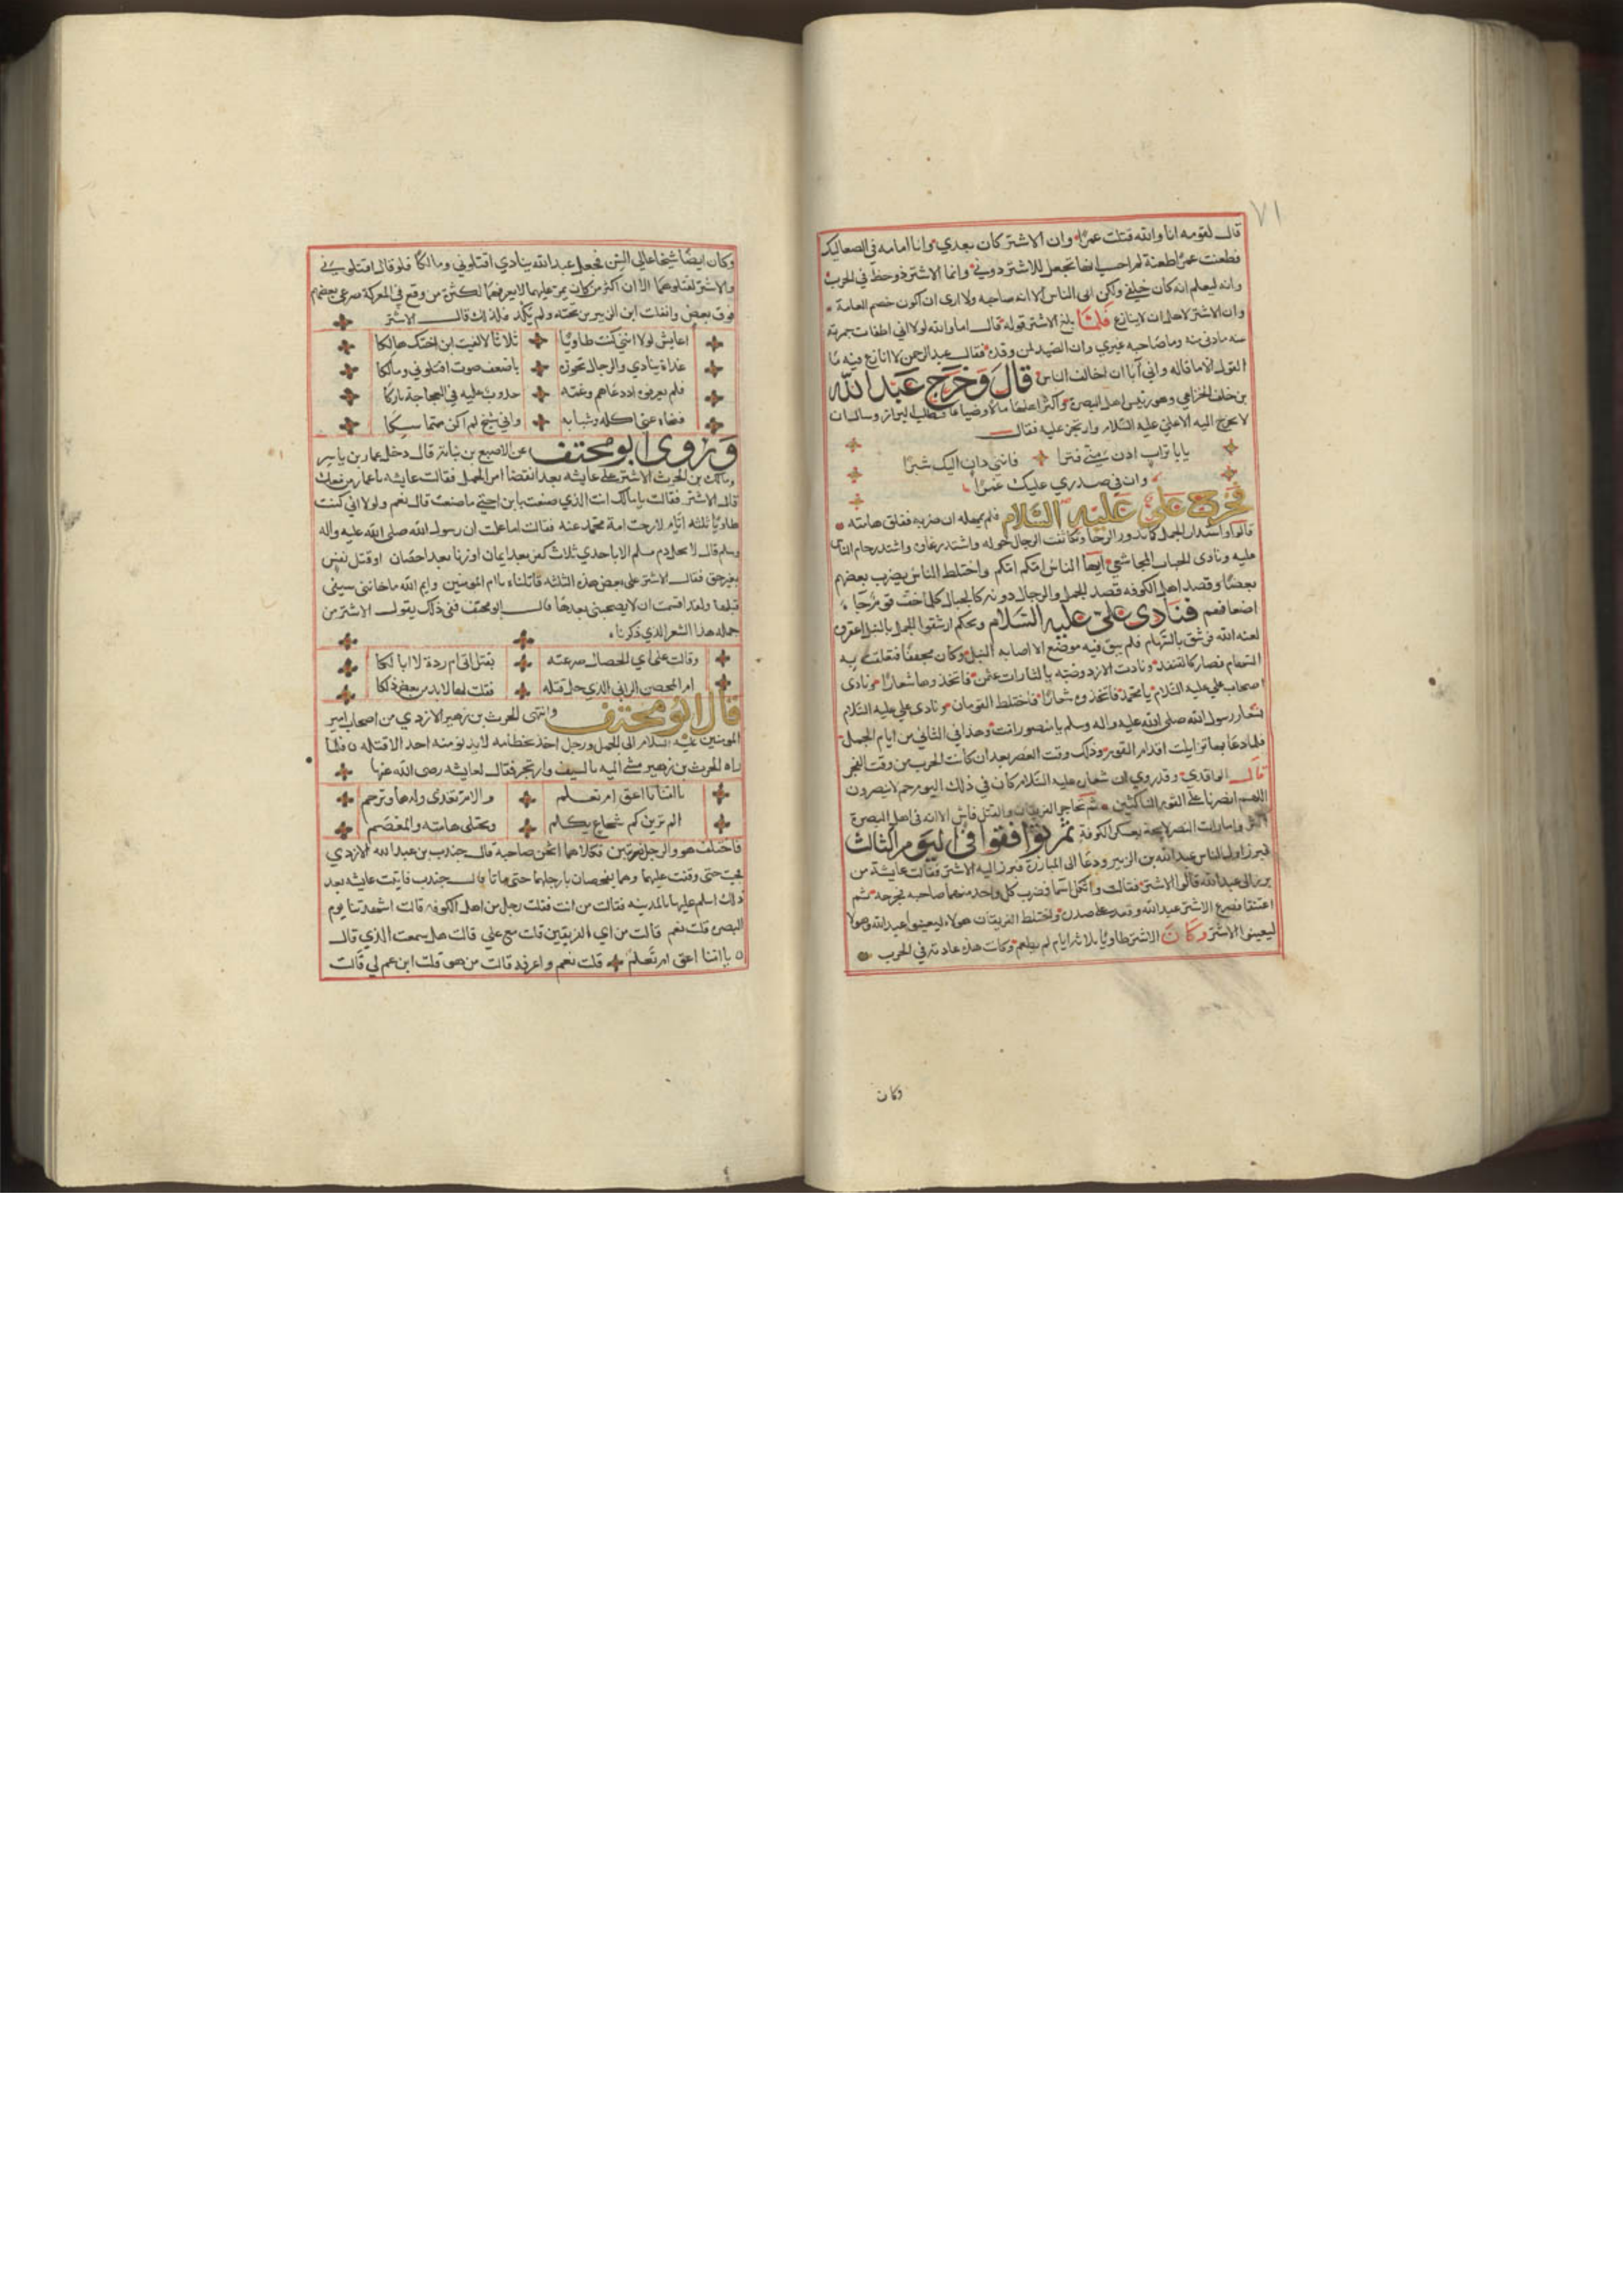 ٧١
قال لقومه انا والله قتلت عمرا وان الاشتر كان بعدي وانا امامه في الصعاليك
فطعنت عمرا طعنة لم احسب انها تجعل للاشتر دوني وانما الاشتر ذو حظ في الحرب
وانه ليعلم انه كان خلفي ولكن ابى الناس الا انه صاحبه ولا ارى ان اكون خصم العامة
وان الاشتر لاهل ان لا ينازع فلما بلغ الاشتر قوله قال اما والله لولا اني اطفات جمرته
عنه ما دنى منه وما صاحبه غيري وان الصيد لمن وقذه فقال عبد الرحمن لا انازع فيه ما
القول الا ما قاله واني ان اخالف الناس قال وخرج عبد الله
بن خلف الخزاعي وهو رئيس اهل البصرة واكثر اهلها مالا وضياعا فطلب البراز وسال ان
لا يخرج اليه الا علي عليه السلام وارتجز عليه فقال
يابا تراب ادن مني فترا فانني دان اليك شبرا
وان في صدري عليك غمرا
فخرج علي عليه السلام فلم يمهله ان ضربه ففلق هامته
قالوا واستدار الجمل كما تدور الرحا وتكاثفت الرجال حوله واشتد رغاؤه واشتد زحام الناس
عليه ونادى الحتات المجاشعي ايها الناس امكم امكم واختلط الناس يضرب بعضهم
بعضا وقصد اهل الكوفه قصد الجمل والرجال دونه كالجبال كلما خف قوم جا
اضعافهم فنادى علي عليه السلام ويحكم ارشقوا الجمل بالنبل اعقروه
لعنه الله فرشق بالسهام فلم يبق فيه موضع الا اصابه النبل وكان مجففا فتعلقت به
السهام فصار كالقنفذ ونادت الازد وضبه يا لثارات عثمن فاتخذوها شعارا ونادى
اصحاب علي عليه السلام يا محمد فاتخذوه شعارا فاختلط الفريقان ونادى علي عليه السلام
بشعار رسول الله صلى الله عليه واله وسلم يا منصور امت وهذا في الثاني من ايام الجمل
فلما دعا بها تزايلت اقدام القوم وذلك وقت العصر بعد ان كانت الحرب من وقت الفجر
قال الواقدي وقد روي ان شعاره عليه السلام كان في ذلك اليوم حم لا ينصرون
اللهم انصرنا على القوم الناكثين ثم تحاجز الفريقان والقتل فاش الا انه في اهل البصرة
اكثر وامارات النصر لايحة لعسكر الكوفة ثم تواقفوا في اليوم الثالث
فبرز اول الناس عبد الله بن الزبير ودعا الى المبارزة فبرز اليه الاشتر فقالت عايشة من
برز الى عبد الله قالوا الاشتر فقالت واثكل اسما فضرب كل واحد منهما صاحبه فجرحه ثم
اعتنقا فصرع الاشتر عبد الله وقعد على صدره واختلط الفريقان هولاء ليعينوا عبد الله وهولا
ليعينوا الاشتر وكان الاشتر طاويا ثلاثة ايام لم يطعم وكانت هذه عادته في الحرب
وكان
وكان ايضا شيخا عالي السن فجعل عبد الله ينادي اقتلوني ومالكا فلو قال اقتلوني
والاشتر لقتلوهما الا ان اكثر من كان يمر عليهما لا يعرفهما لكثرة من وقع في المعركة صرعى بعضهم
فوق بعض وانفلت ابن الزبير من تحته ولم يكد فلذلك قال الاشتر
اعايش لولا انني كنت طاويا ثلاثا لالفيت ابن اختك هالكا
غداة ينادي والرجال تحوزه باضعف صوت اقتلوني ومالكا
فلم يعرفوه اذ دعاهم وغمه خدوب عليه في العجاجة باركا
فنجاه عني اكله وشبابه واني شيخ لم اكن متماسكا
وروى ابو مخنف عن الاصبغ بن نباته قال دخل عمار بن ياسر
ومالك بن الحرث الاشتر على عايشه بعد انقضا امر الجمل فقالت عايشه يا عمار من معك
قال الاشتر فقالت يا مالك انت الذي صنعت بابن اختي ما صنعت قال نعم ولولا اني كنت
طاويا ثلثه ايام لارحت امة محمد منه فقالت اما علمت ان رسول الله صلى الله عليه واله
وسلم قال لا يحل دم مسلم الا باحدي ثلاث كفر بعد ايمان او زنا بعد احصان او قتل نفس
بغير حق فقال الاشتر على بعض هذه الثلثه قاتلناه يا ام المومنين وايم الله ما خانني سيفي
قبلها ولقد اقسمت ان لا يصحبني بعدها قال ابو مخنف ففي ذلك يقول الاشتر من
جمله هذا الشعر الذي ذكرناه
وقالت على اي الخصال صرعته بقتل اتى ام ردة لا ابا لكا
ام المحصن الزاني الذي حل قتله فقلت لها لا بد من بعض ذلكا
قال ابو مخنف وانتهى الحرث بن زهير الازدي من اصحاب امير
المومنين عليه السلام الى الجمل ورجل اخذ بخطامه لا يدنو منه احد الا قتله فلما
راه الحرث بن زهير مشى اليه بالسيف وارتجز فقال لعايشه رضى الله عنها
يا امنا يا اعق ام تعلم والام تغدى ولدها وترحم
الم ترين كم شجاع يكلم وتختلى هامته والمعصم
فاختلف هو والرجل ضربتين فكلاهما اثخن صاحبه قال جندب بن عبد الله الازدي
فجيت حتى وقفت عليهما وهما يفحصان بارجلهما حتى ماتا قال جندب فاتيت عايشه بعد
ذلك اسلم عليها بالمدينه فقالت من انت فقلت رجل من اهل الكوفه قالت اشهدتنا يوم
البصره قلت نعم قالت من اي الفريقين قلت مع علي قالت هل سمعت الذي قال
يا امنا اعق ام تعلم قلت نعم واعرفه قالت من هو قلت ابن عم لي قالت